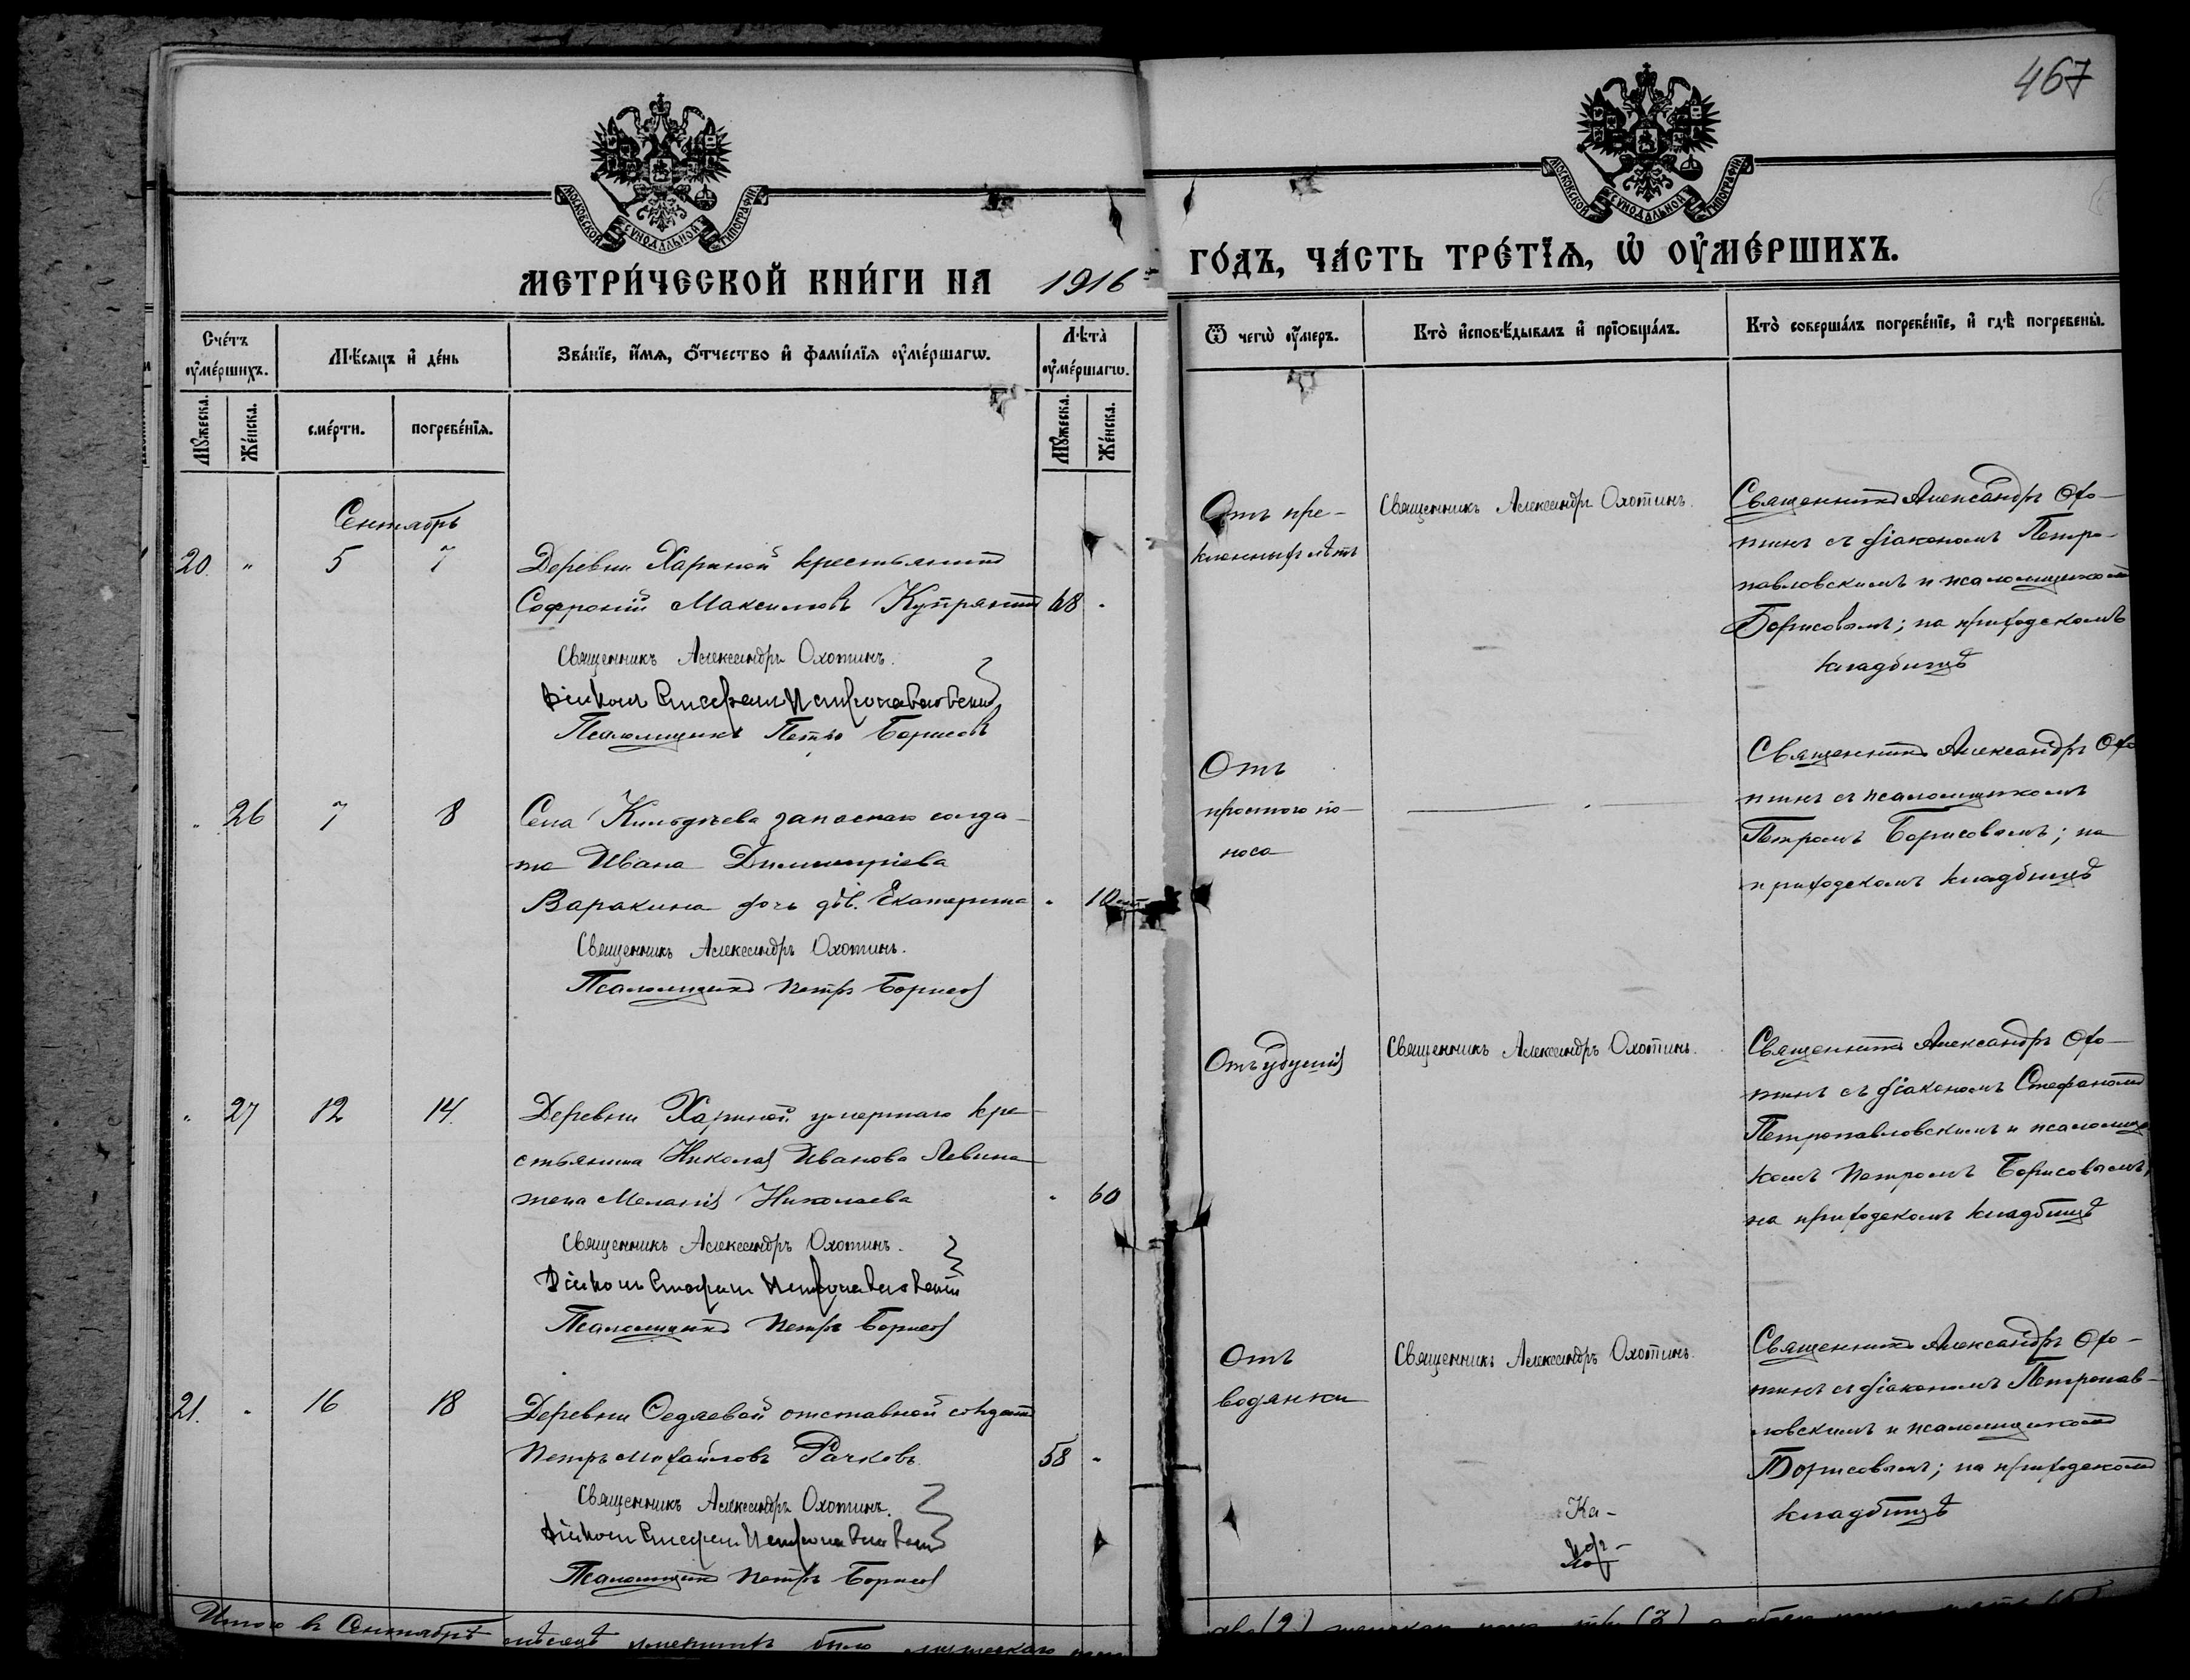 467
МОСКОВСКОЙ СУНОДАЛЬНОЙ ТИПОГРАФІИ
МОСКОВСКОЙ СУНОДАЛЬНОЙ ТИПОГРАФІИ
МЕТРИ́ЧЕСКОЙ КНИ́ГИ НА 1916
ГО́ДЪ, ЧА́СТЬ ТРЕ́ТЇѦ, Ѡ҆ ОУ҆МЕ́РШИХЪ.
Сче́тъ оу҆ме́ршихъ.
Мѣ́сяцъ и҆ де́нь
Зва́нїе, и҆́мѧ, ѻ҆́тчество и҆ фами́лїѧ оу҆ме́ршагѡ.
Лѣ́та̀ оу҆ме́ршагѡ.
Ѿ чегѡ̀ оу҆́меръ.
Кто̀ и҆сповѣ́дывалъ и҆ прїѻбща́лъ.
Кто̀ соверша́лъ погребе́нїе, и҆ гдѣ̀ погребены̀.
Мꙋ́жеска.
Же́нска.
сме́рти.
погребе́нїѧ.
Мꙋ́жеска.
Же́нска.
Сентябрь
20. " 5 7
Деревни Хариной крестьянинъ
Софроній Максимовъ Купряшинъ 68 "
Священникъ Александръ Охотинъ.
Діаконъ Стефанъ Петропавловскій
Псаломщикъ Петръ Борисовъ
Отъ пре-
клонныхъ лѣтъ
Священникъ Александръ Охотинъ.
Священникъ Александръ Охо-
тинъ съ діакономъ Петро-
павловскимъ и псаломщикомъ
Борисовымъ; на приходскомъ
кладбищѣ
" 26 7 8
Села Кильдѣева запаснаго солда-
та Ивана Димитріева
Варакина дочь дѣв. Екатерина " 10
Священникъ Александръ Охотинъ.
Псаломщикъ Петръ Борисовъ
Отъ
простого по-
носа
Священникъ Александръ Охо
тинъ съ псаломщикомъ
Петромъ Борисовымъ; на
приходскомъ кладбищѣ
" 27 12 14.
Деревни Хариной умершаго кре-
стьянина Николая Иванова Левина
жена Меланія Николаева " 60
Священникъ Александръ Охотинъ.
Діаконъ Стефанъ Петропавловскій
Псаломщикъ Петръ Борисовъ
Отъ удушія
Священникъ Александръ Охотинъ.
Священникъ Александръ Охо-
тинъ съ діакономъ Стефаномъ
Петропавловскимъ и псаломщи
комъ Петромъ Борисовымъ,
на приходскомъ кладбищѣ
21. " 16 18
Деревни Седяевой отставной солдатъ
Петръ Михайловъ Рачковъ 58 "
Священникъ Александръ Охотинъ.
Діаконъ Стефанъ Петропавловскій
Псаломщикъ Петръ Борисовъ
Отъ
водянки
Священникъ Александръ Охотинъ.
Священникъ Александръ Охо-
тинъ съ діакономъ Петропав-
ловскимъ и псаломщикомъ
Борисовымъ; на приходскомъ
кладбищѣ
Ка-
Итого въ Сентябрѣ мѣсяцѣ умершихъ было мужескаго пола
два (2) женскаго пола три (3) а обоего пола